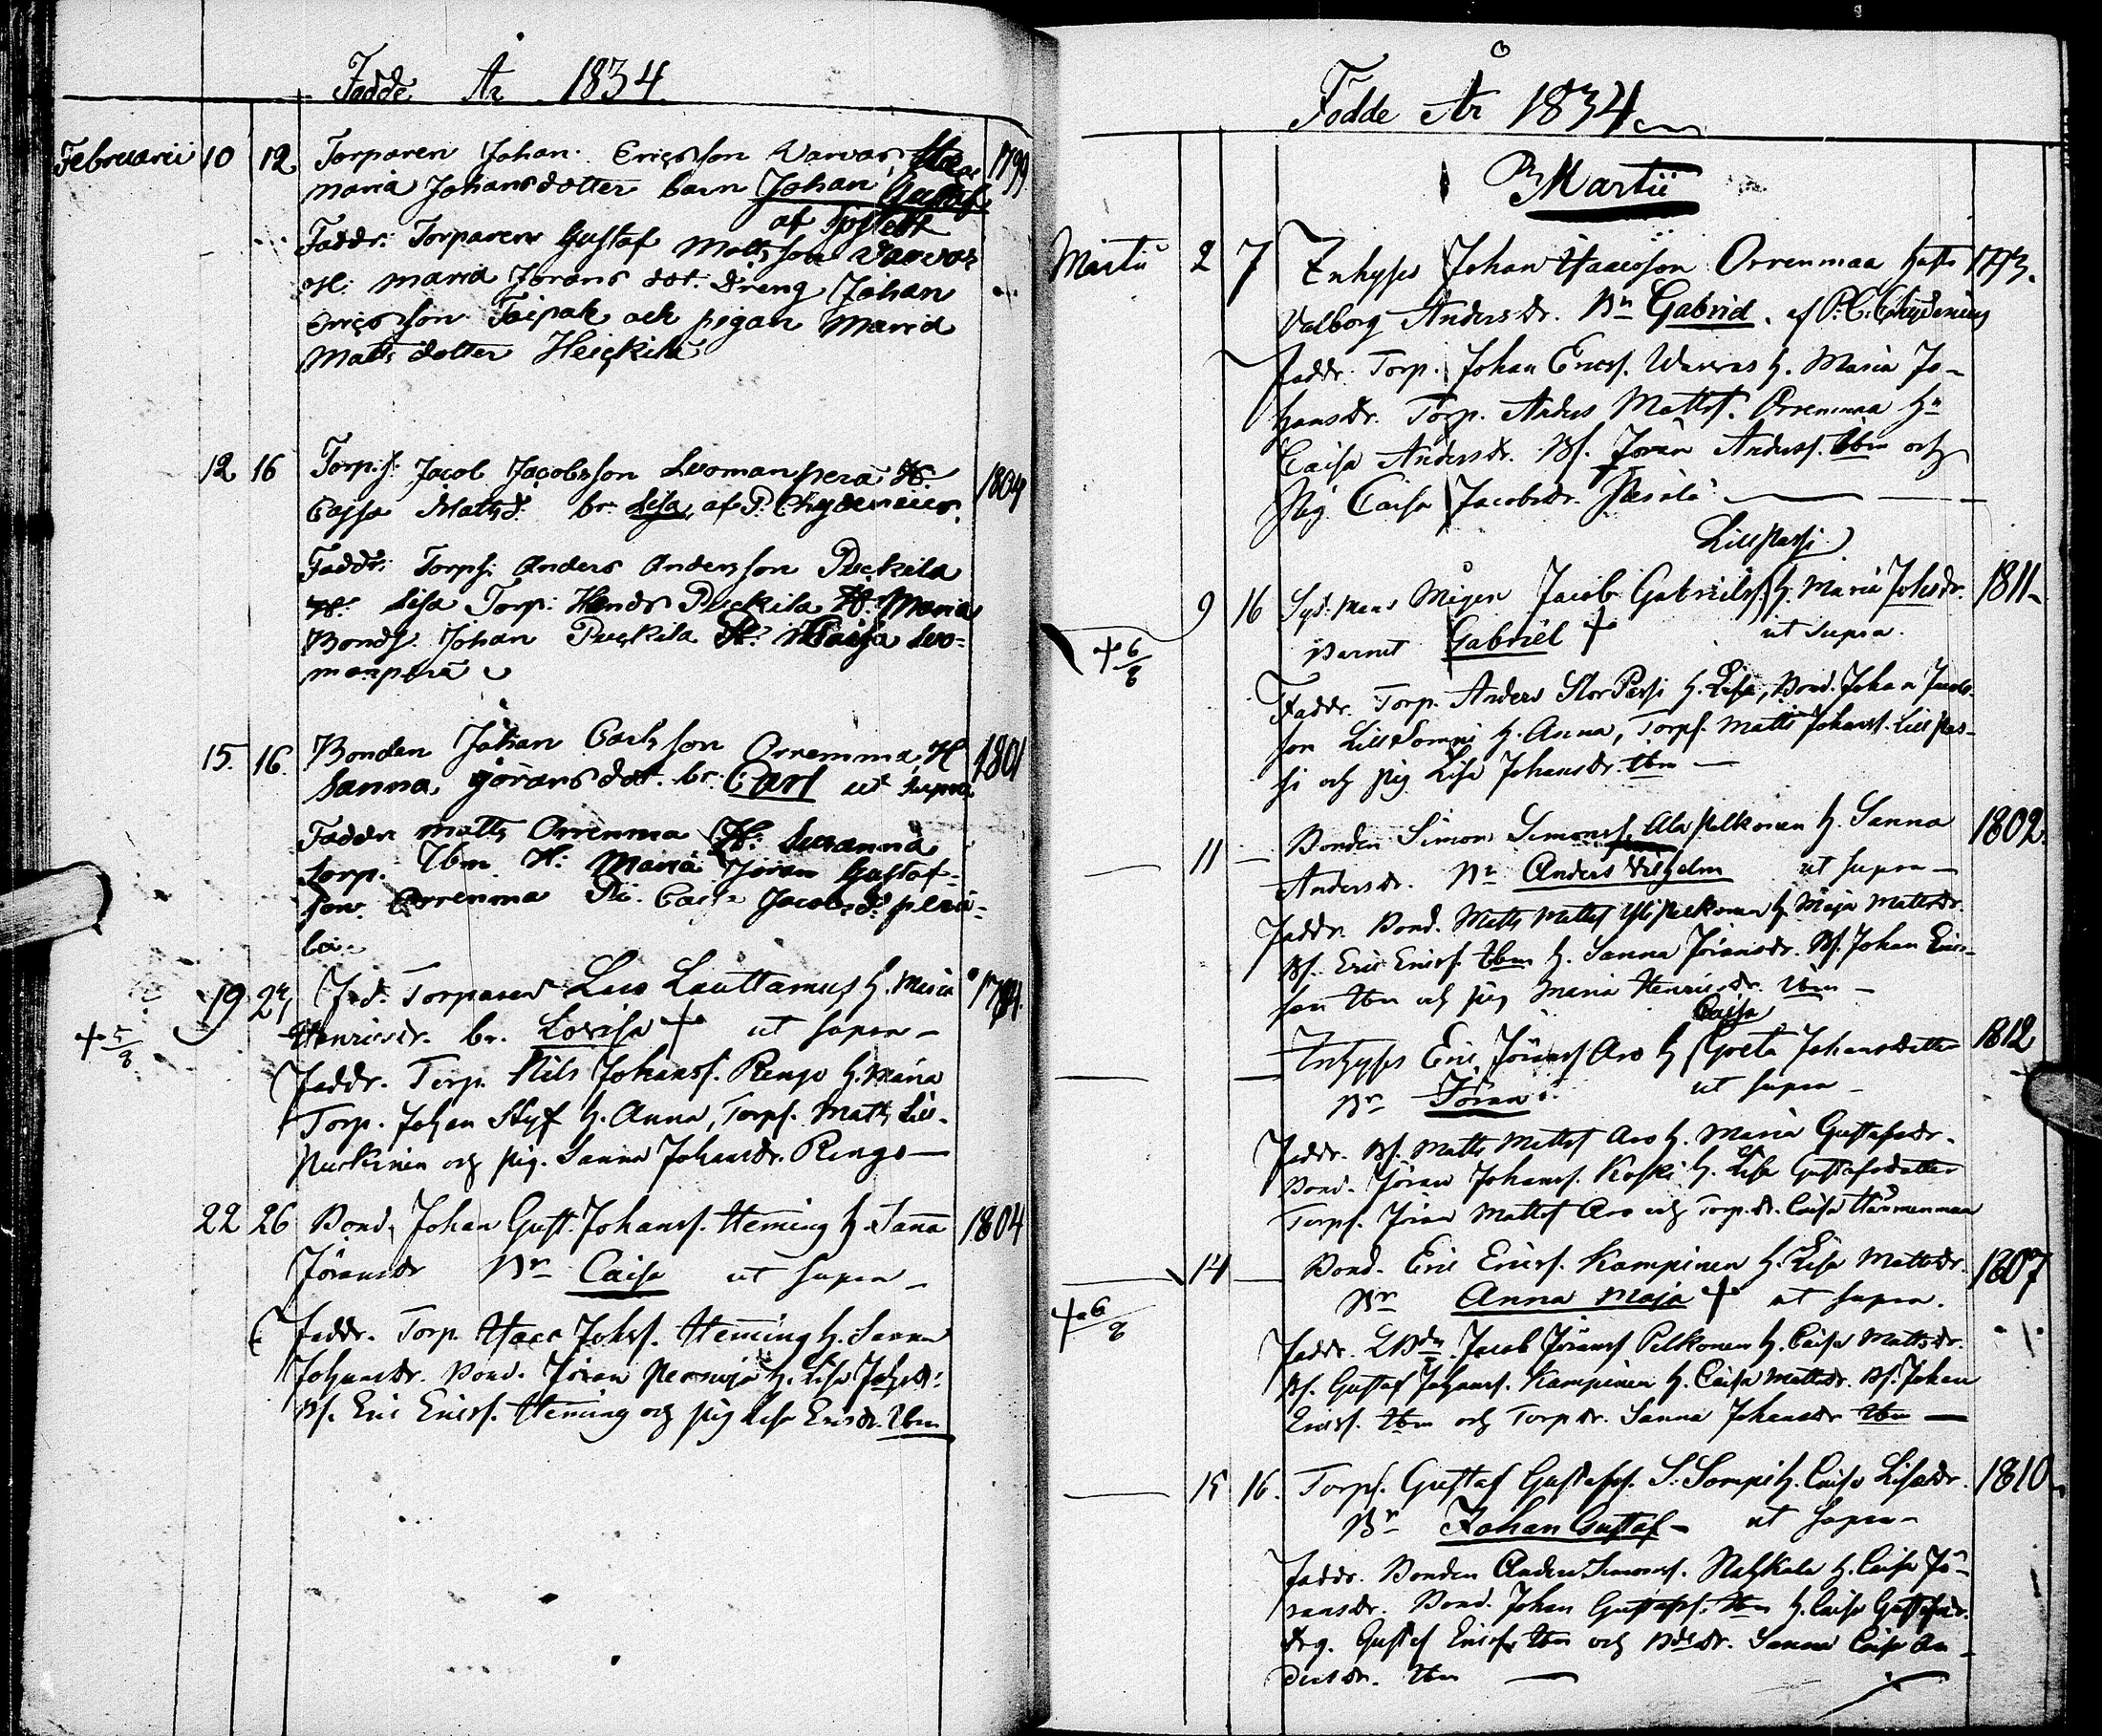 Födde År 1834
Februarii 10 12 Torparen Johan Ericsson Varvas 1799
Maria Johansdotter barn Johan Gustaf
Faddr: Torparen Gustaf Mattsson Varvas
H: Maria Jörans dot. Dreng Johan
Ericsson Taipak och pigan Maria
Matts dotter Heickilä
12 16 Torp.s. Jacob Jacobsson Luomanperä H. 1804
Cajsa Matts d. br. Lisa, af P. Chydenius.
Faddr: Torps: Anders Andersson Puckila
H: Lisa Torp: Puckila H: Maria
Bonds. Johan Puckila H: Caisa Luo-
manperä
15. 16. Bonden Johan Carlsson Orrenma, H 1801
Sanna, Görans dot. br. Carl ut supra
Faddr Matts Orrenma H: Susanna
Torp. Ibm H: Maria Jöran Gustaf-
son Orrenma Pi. Caisa Jacobsd: perä-
lä
19 Torparen Luo Lauttamus h. Maria
+ 5/8 Henricsdr. br. Lovisa + ut supra –
Faddr. Torp. Nils Johanss. Rengo h. Maria
Torp. Johan Styf h. Anna, Torps. Matts
och pig. Sanna Johansdr. Rengo —
22 26 Bond. Johan Gust. Johanss. Heming h. Sanna 1804
Jöransdr Bn Caisa ut supra –
Faddr. Torp. Isaac Johss. Heming h. Sanna
Johansdr. Bond. Jöran h. Lisa Johsdr:
Bs. Eric Ericss. Heming och pig Lisa Ericsdr. Ibm
Födde År 1834
Martii
Martii 2 7 Inhyses Johan Isacsson Orrenmaa hustr
Valborg Andersdr. Bn Gabriel. af P. C. Chydenius
Faddr. Torp. Johan Ericss. Warvas h. Maria Jo-
hansdr. Torp. Anders Mattss. Orrenmaa hu
Caisa Andersdr. Bs. Jöran Anderss. Ibm och
Pig Caisa Jacobsdr.
Lillpassi
9 16 Jacob Gabrielss. h. Maria Johsdr. 1811
+ 6/8 Barnet Gabriel + ut supra.
Faddr. Torp. Anders Stor Passi h. Lisa, Bond. Johan
son Lill Sompi h. Anna, Torps. Matts Johanss. Lill Pas-
si och pig Lisa Johansdr. Ibm —
11 — Bonden Simon Simonss. Ala Pelkonen h. Sanna 1802
Andersdr. Bn Anders Vilhelm ut supra —
Faddr. Bond. Matts Mattss Yli Pelkonen h. Maja Mattsdr.
Bs. Eric Ericss. Ibm h. Sanna Jöransdr. Bs. Johan Erics-
son Ibm och pig Maria Henricsdr. Ibm –
Caisa
— Inhyses Eric Jöranss Aro h Greta Johansdotter 1812
Bn Jöran ut supra –
Faddr. Bs. Matts Mattss Aro h. Maria Gustafsdr.
Bond. Jöran Johanss. Koski h. Lisa Gustafsdotter
Torps. Jöran Mattss Aro och Torp.dr. Caisa
14 — Bond. Eric Ericss. Kampinen h. Lisa Mattsdr. 1807
+ 6/8 Bn Anna Maja + ut supra.
Faddr. Jacob Jöranss Pelkonen h. Caisa Mattsdr.
Bs. Gustaf Johanss. Kampinen h. Caisa Mattsdr. Bs. Johan
Ericss. Ibm och Torpdr. Sanna Johansdr Ibm —
15 16. Torps. Gustaf Gustafss. S. Sompi h. Caisa 1810
Bn Johan Gustaf – ut supra –
Faddr. Bonden Anders Simonss. h. Caisa Jö-
ransdr. Bond. Johan Gustafss. Ibm h. Caisa Gustafsdr.
Drg. Gustaf Ericss. Ibm och Sanna Caisa An-
dersdr. Ibm —